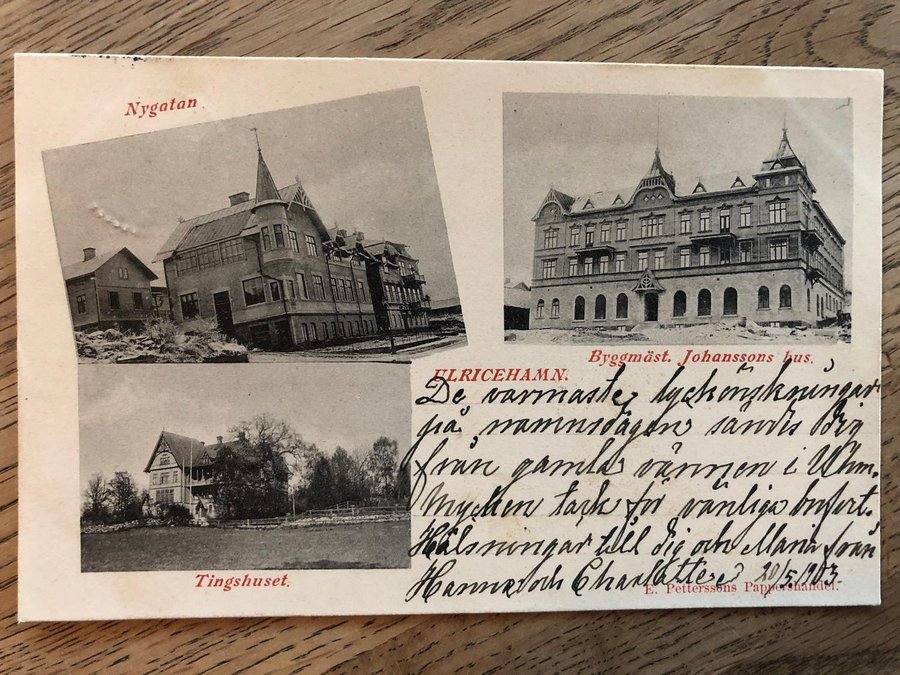 Nygatan
Byggmäst. Johanssons hus.
ULRICEHAMN.
De varmaste lyckönskningar
på namnsdagen sändes Dig
från gamla vännen i Uhm.
Mycken tack för vänliga brefort.
Hälsningar till dig och Maria från
Hanna och Charlotte 20/5 1903
Tingshuset.
E. Petterssons Pappershandel.